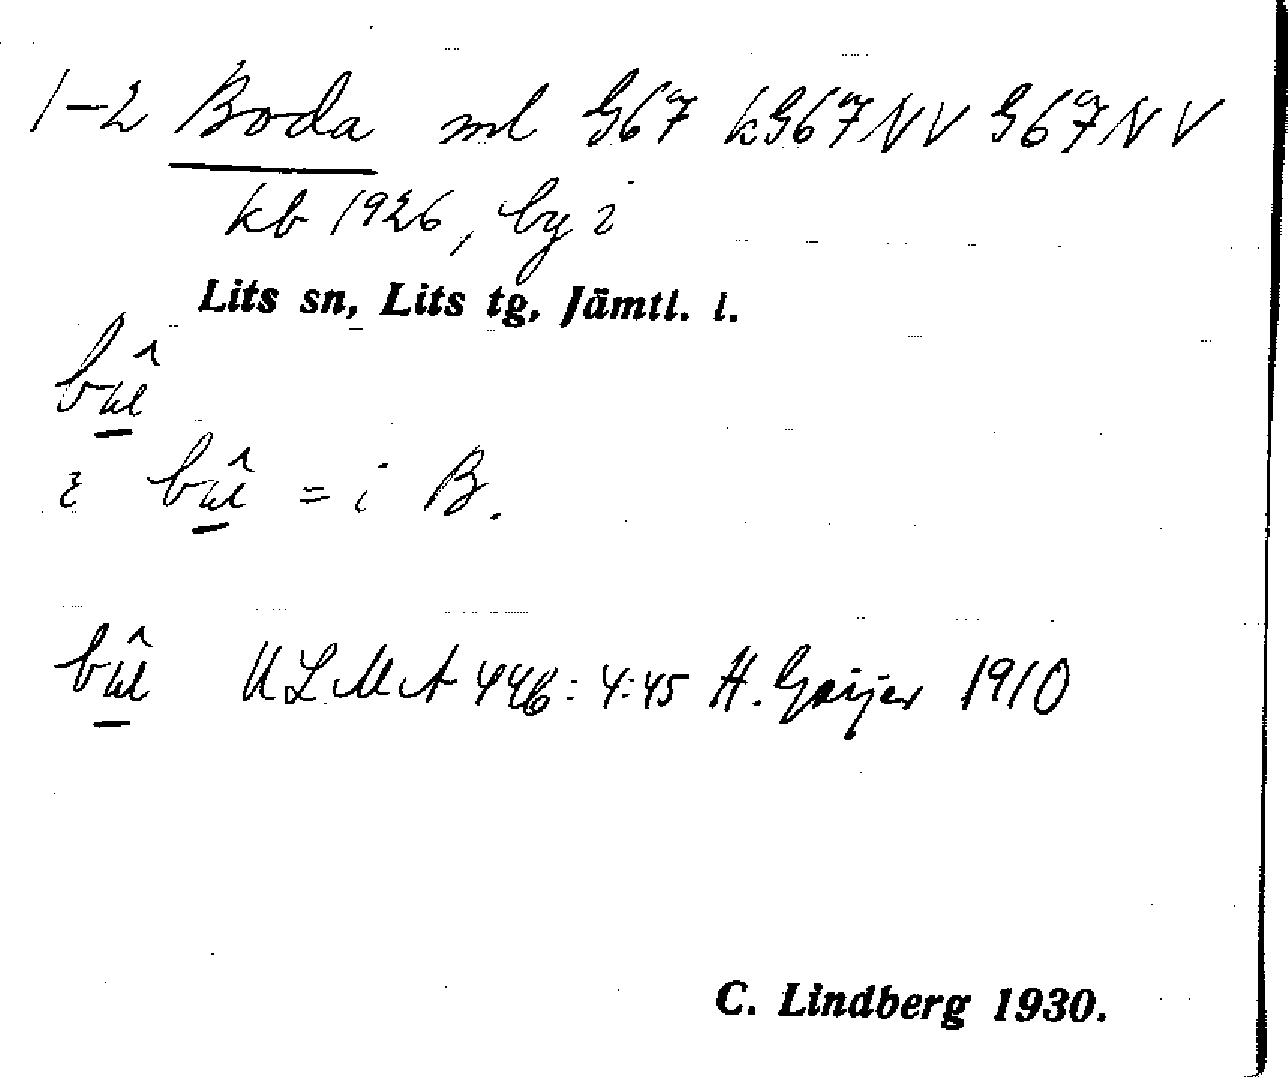 1-2 Boda ml G67 kG67NV G67NV
kb 1926, by i
Lits sn, Lits tg, Jämtl. l.
bû̲
i bû̲ = i B.
bû̲ ULMA 446:4:45 H. Geijer 1910
C. Lindberg 1930.